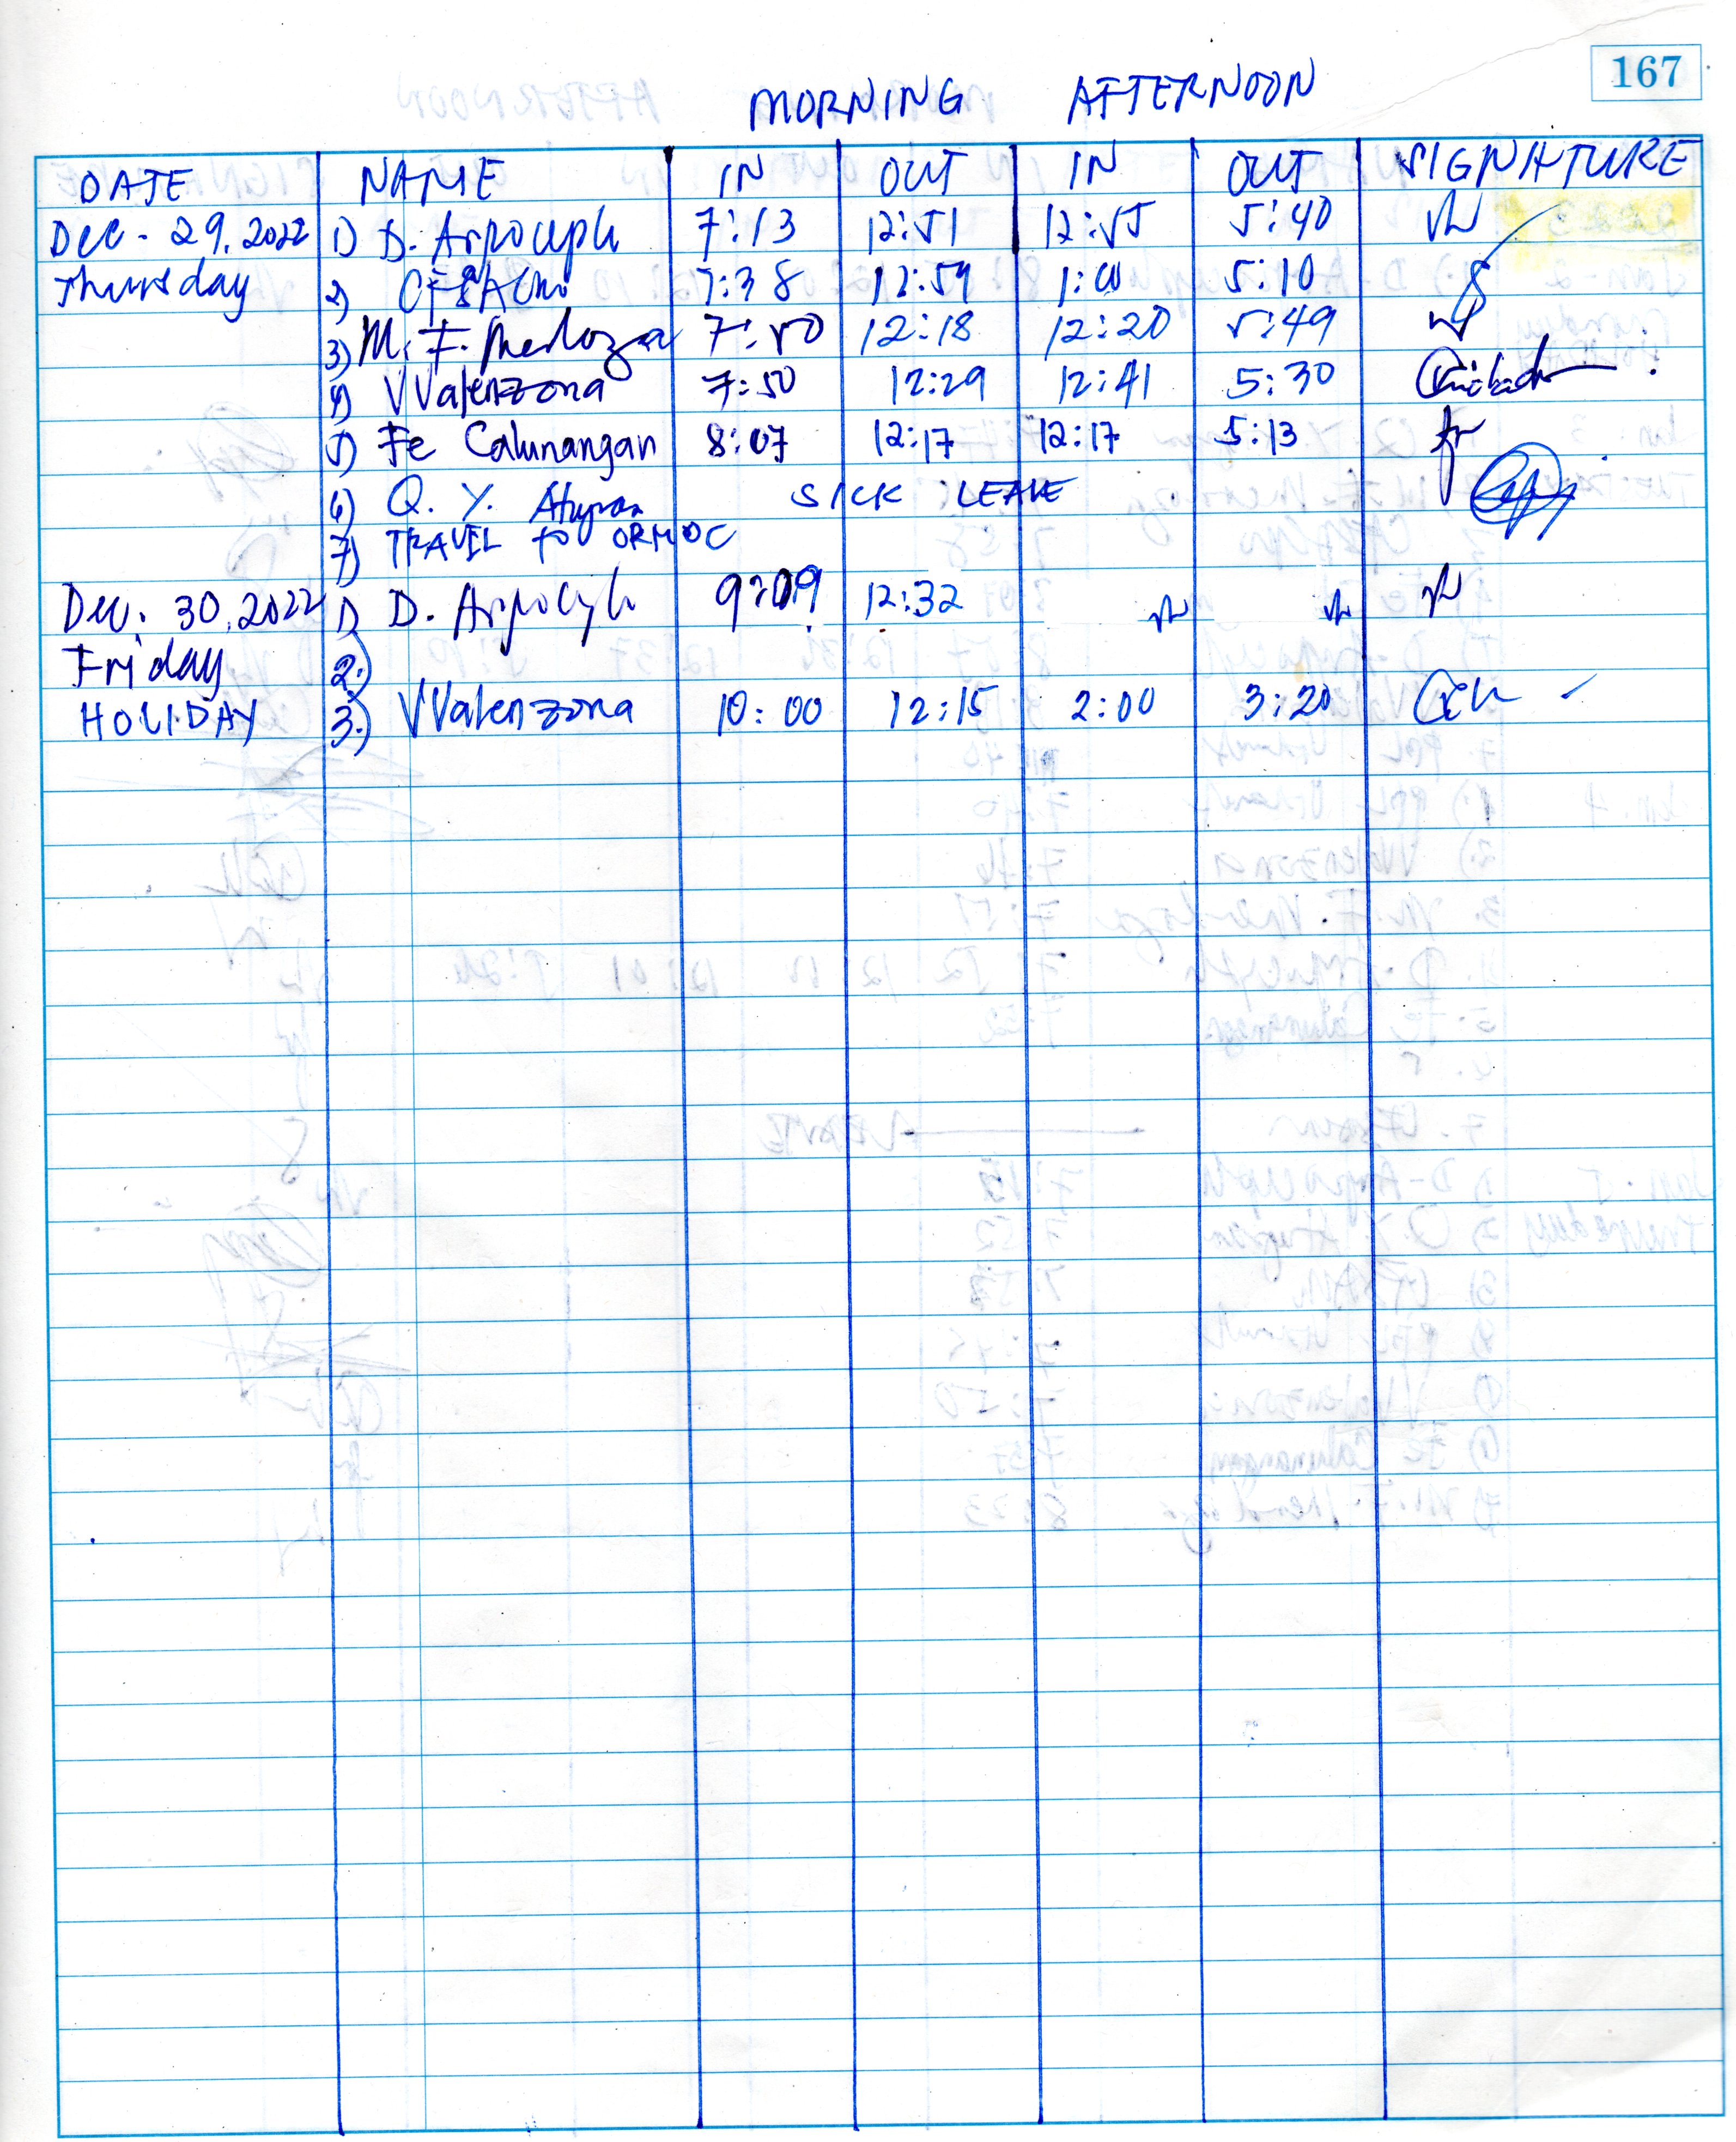 167
MORNING AFTERNOON
DATE NAME IN OUT IN OUT SIGNATURE
Dec. 29, 2022 1) D. 7:13 12:51 12:55 5:40
Thursday 2) 7:38 12:59 1:00 5:10
3) M. F. Mendoza 7:50 12:18 12:20 5:49
4) VValenzona 7:50 12:29 12:41 5:30
5) Fe Calunangan 8:07 12:17 12:17 5:13
6) Q. Y. SICK LEAVE
7) TRAVEL TO ORMOC
Dec. 30, 2022 1) D. 9:09 12:32
Friday 2.)
HOLIDAY 3.) VValenzona 10:00 12:15 2:00 3:20